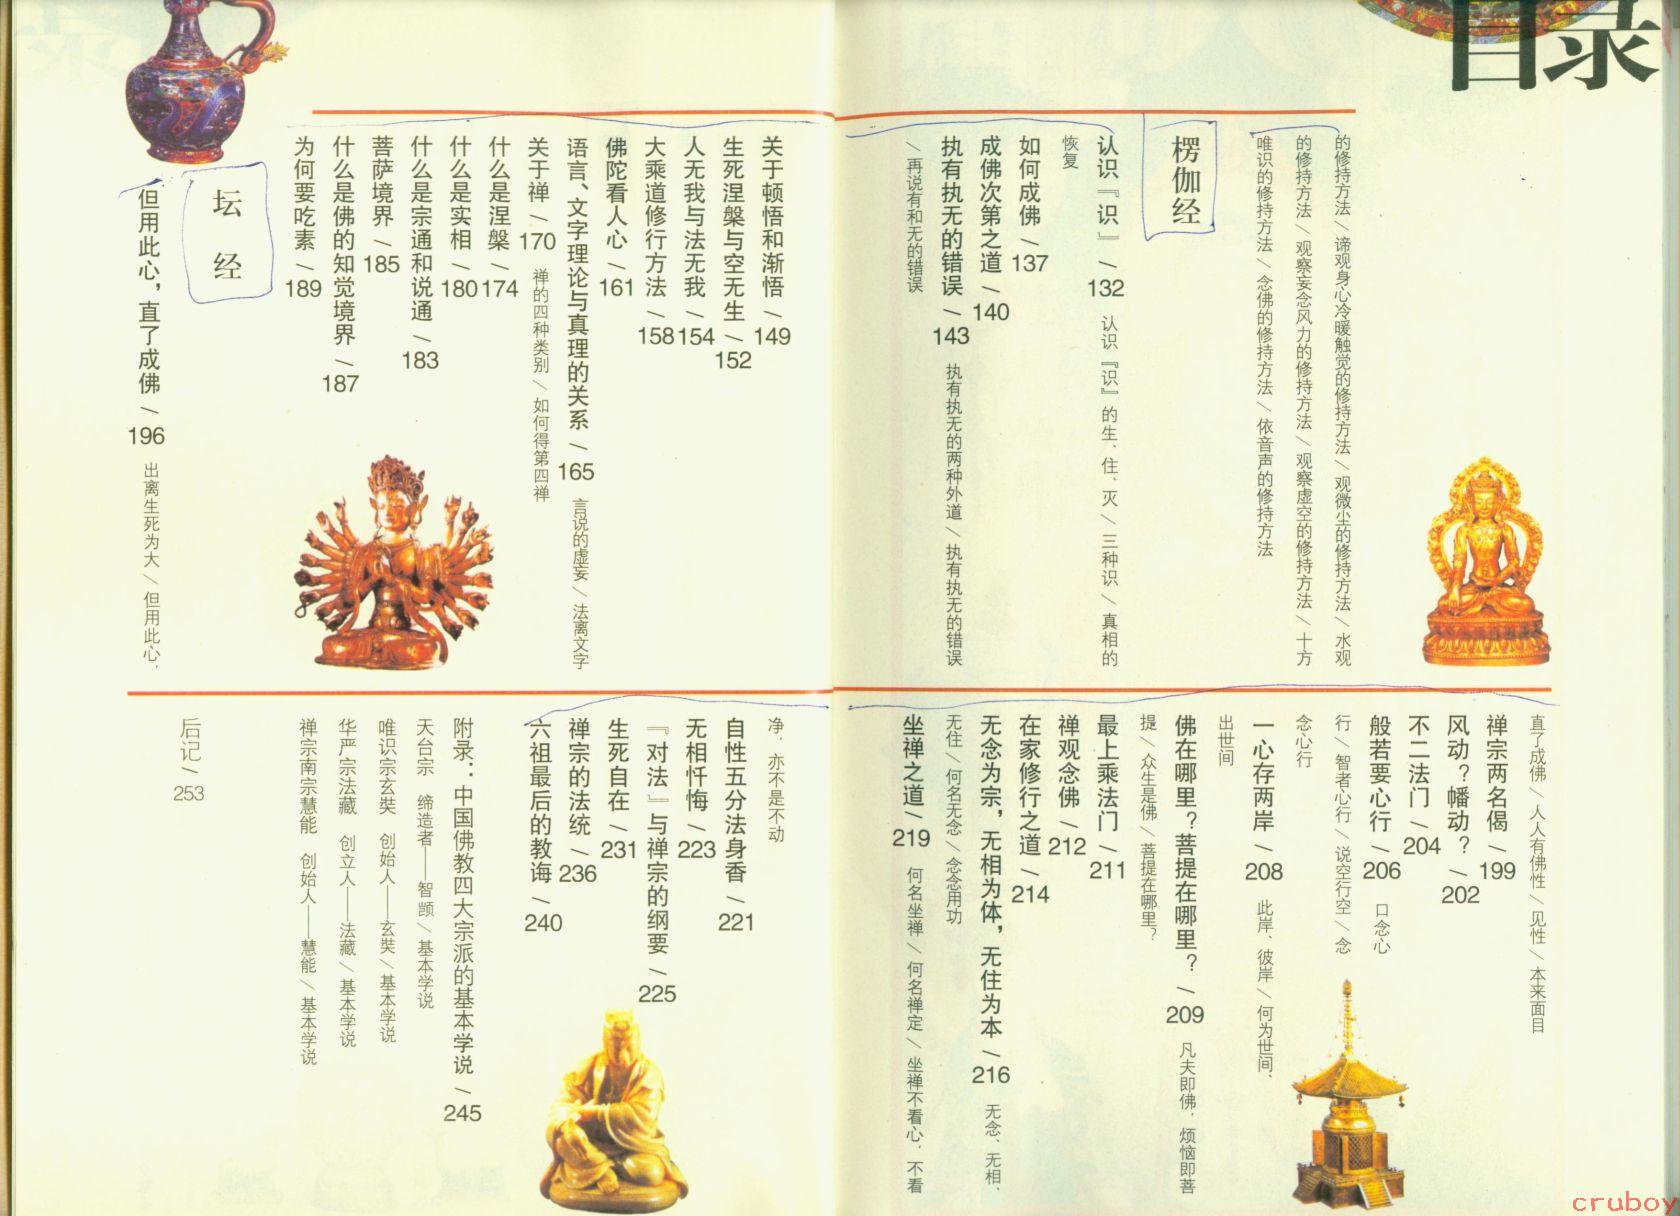 目录
的修持方法／谛观身心冷暖触觉的修持方法／观微尘的修持方法／水观
的修持方法／观察妄念风力的修持方法／观察虚空的修持方法／十方
唯识的修持方法／念佛的修持方法／依音声的修持方法
楞伽经
认识『识』／132 认识『识』的生、住、灭／三种识／真相的
恢复
如何成佛／137
成佛次第之道／140
执有执无的错误／143 执有执无的两种外道／执有执无的错误
／再说有和无的错误
关于顿悟和渐悟／149
生死涅槃与空无生／152
人无我与法无我／154
大乘道修行方法／158
佛陀看人心／161
语言、文字理论与真理的关系／165 言说的虚妄／法离文字
关于禅／170 禅的四种类别／如何得第四禅
什么是涅槃／174
什么是实相／180
什么是宗通和说通／183
菩萨境界／185
什么是佛的知觉境界／187
为何要吃素／189
坛经
但用此心，直了成佛／196 出离生死为大／但用此心，
直了成佛／人人有佛性／见性／本来面目
禅宗两名偈／199
风动？幡动？／202
不二法门／204
般若要心行／206 口念心
行／智者心行／说空行空／念
念心行
一心存两岸／208 此岸、彼岸／何为世间、
出世间
佛在哪里？菩提在哪里？／209 凡夫即佛，烦恼即菩
提／众生是佛／菩提在哪里？
最上乘法门／211
禅观念佛／212
在家修行之道／214
无念为宗，无相为体，无住为本／216 无念、无相、
无住／何名无念／念念用功
坐禅之道／219 何名坐禅／何名禅定／坐禅不看心，不看
净，亦不是不动
自性五分法身香／221
无相忏悔／223
『对法』与禅宗的纲要／225
生死自在／231
禅宗的法统／236
六祖最后的教诲／240
附录：中国佛教四大宗派的基本学说／245
天台宗 缔造者——智𫖮／基本学说
唯识宗玄奘 创始人——玄奘／基本学说
华严宗法藏 创立人——法藏／基本学说
禅宗南宗慧能 创始人——慧能／基本学说
后记／253
cruboy